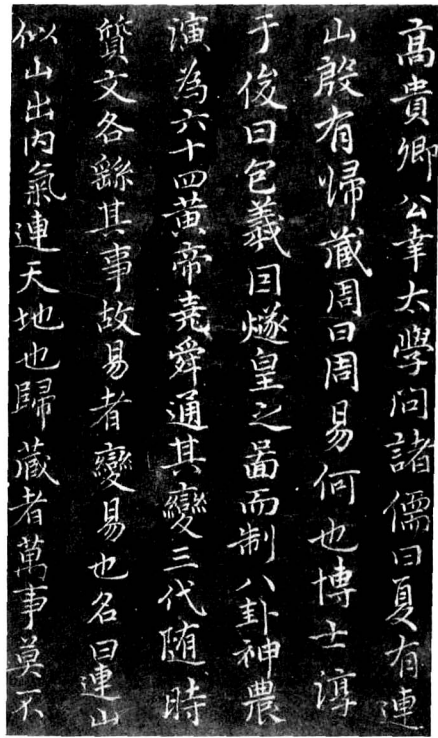 高貴卿公幸太學问諸儒曰夏有連
山殷有歸藏周曰周易何也博士淳
于俊曰包羲因燧皇之圖而制八卦神農
演為六十四黄帝堯舜通其變三代随時
質文各繇其事故易者變易也名曰連山
似山出内氣連天地也歸藏者萬事莫不